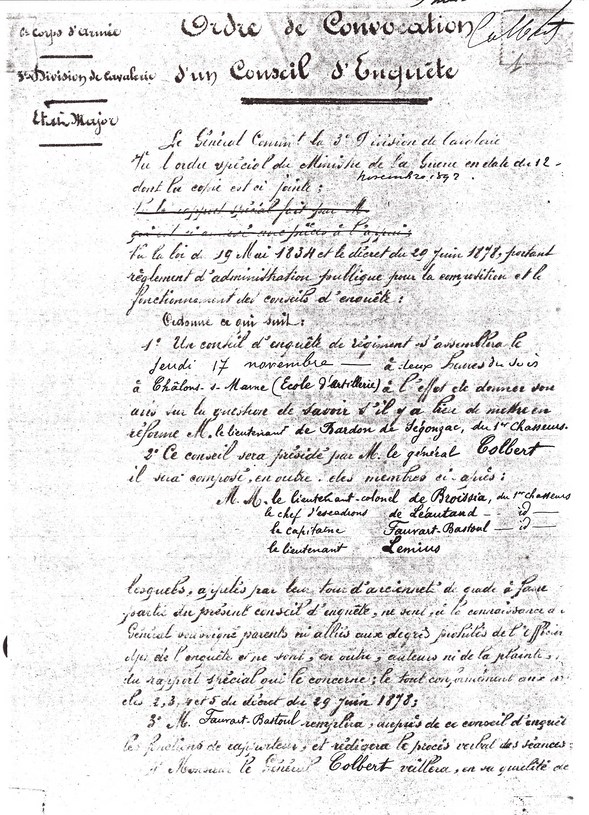 6e Corps d'Armée
3me Division de Cavalerie
Etat Major
Ordre de Convocation
d'un Conseil d'Enquête
Colbert
Le Général Commt la 3e Division de Cavalerie
Vu l'ordre spécial du Ministre de la Guerre en date du 12
novembre 1892.
dont la copie est ci jointe ;
Vu le rapport spécial fait par M.
Vu la loi du 19 Mai 1834 et le décret du 29 Juin 1878, portant
règlement d'administration publique pour la composition et le
fonctionnement des conseils d'enquête :
Ordonne ce qui suit :
1° Un conseil d'enquête de régiment s'assemblera le
Jeudi 17 novembre — à deux heures du soir
à Châlons-s-Marne (Ecole d'Artillerie) à l'effet de donner son
avis sur la question de savoir s'il y a lieu de mettre en
réforme M. le lieutenant de Bardon de Segonzac, du 1er Chasseurs.
2° Ce conseil sera présidé par M. le général Colbert
il sera composé, en outre, des membres ci-après :
M. M. le lieutenant-colonel de Broissia, du 1er Chasseurs
le chef d'escadrons de Léautand — id —
le capitaine Fauvart-Bastoul — id —
le lieutenant Lemius
lesquels, appelés par leur tour d'ancienneté de grade à faire
partie du présent conseil d'enquête, ne sont, à la connaissance
Général soussigné parents ni alliés aux degrés prohibés de l'officier
de l'enquête et ne sont, en outre, auteurs ni de la plainte,
du rapport spécial qui le concerne ; le tout conformément aux
cles 2, 3, 4 et 5 du décret du 29 Juin 1878 ;
3° M. Fauvart-Bastoul remplira, auprès de ce conseil d'enquêt
les fonctions de rapporteur, et rédigera le procès verbal des séances :
4° Monsieur le Général Colbert veillera, en sa qualité de